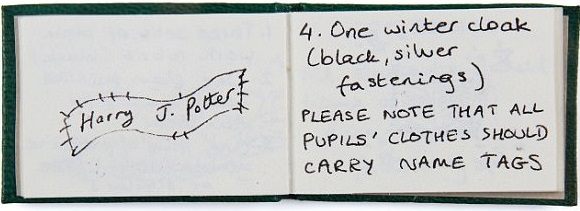 Harry J. Potter
4. One winter cloak
(black, silver
fastenings)
PLEASE NOTE THAT ALL
PUPILS' CLOTHES SHOULD
CARRY NAME TAGS